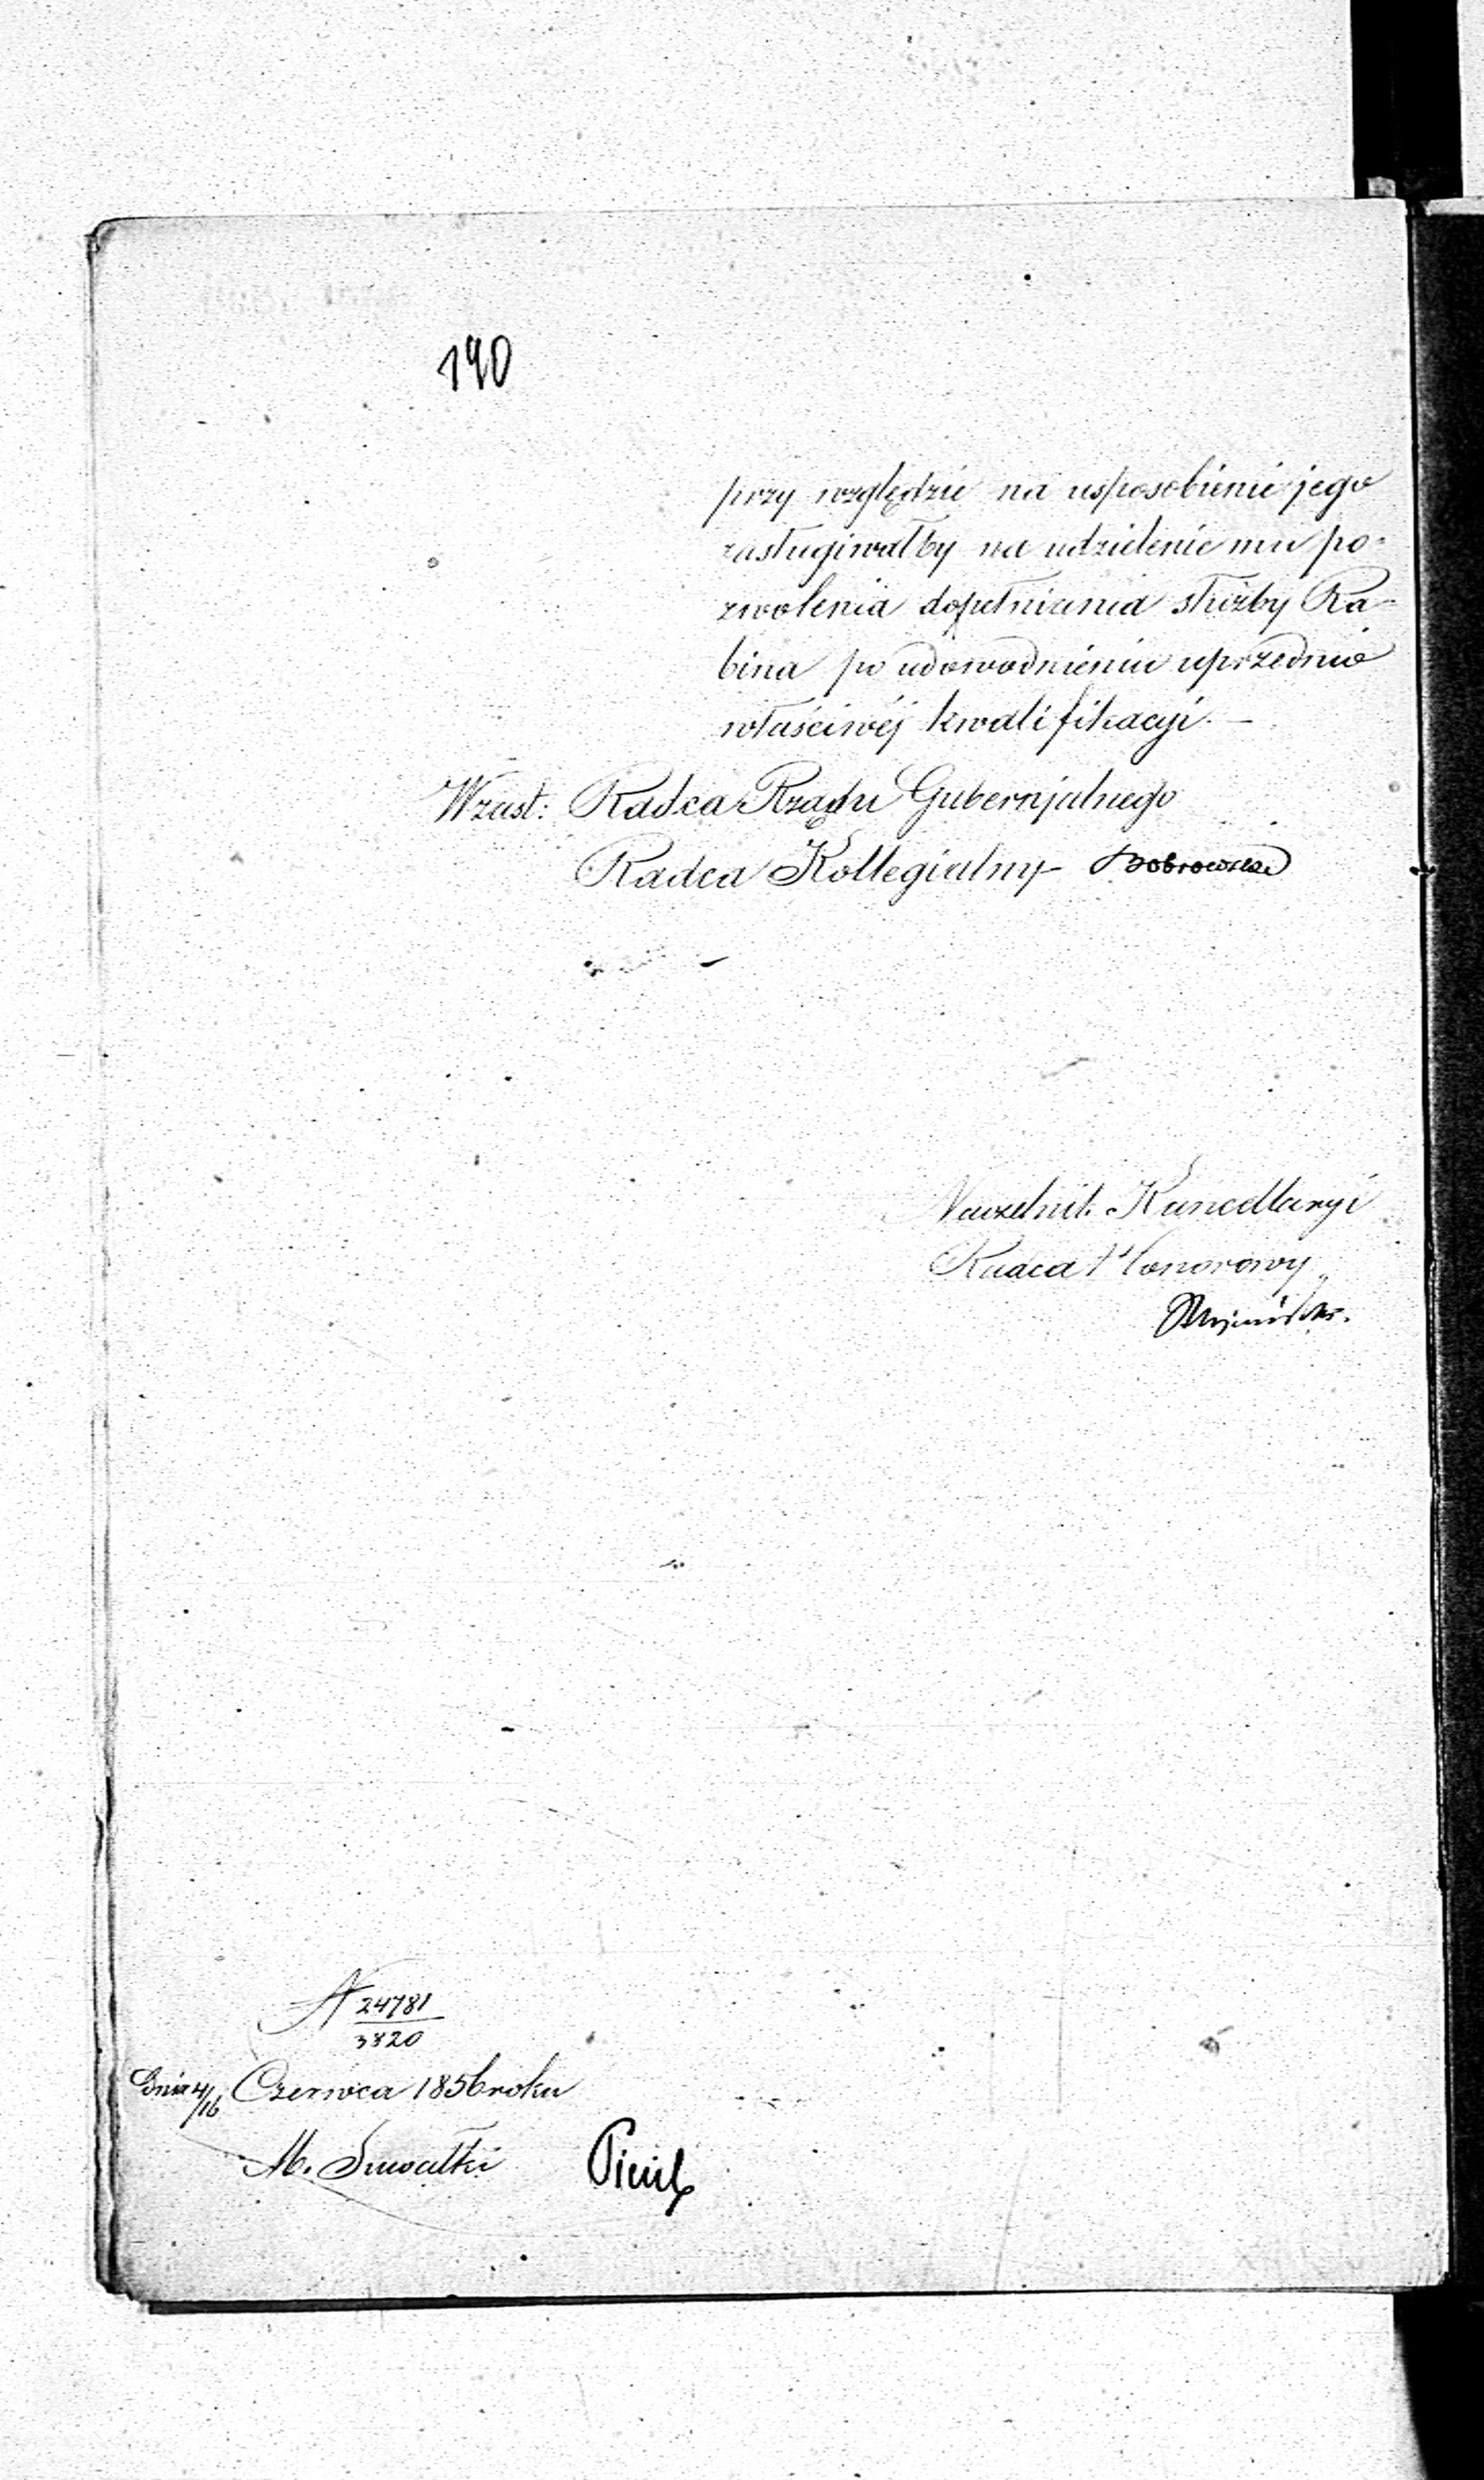 190
przy względzie na usposobienie jego
zasługiwałby na udzielenie mu po=
zwolenia dopełniania służby Ra=
bina po udowodnieniu uprzednio
właściwéj kwalifikacyi. —
W zast: Radca Rządu Gubernjalnego
Radca Kollegialny Dobrowolski
Naczelnik Kancellaryi
Radca Honorowy
N 24781
3820
Dnia 4/16 Czerwca 1856 roku
M. Suwałki